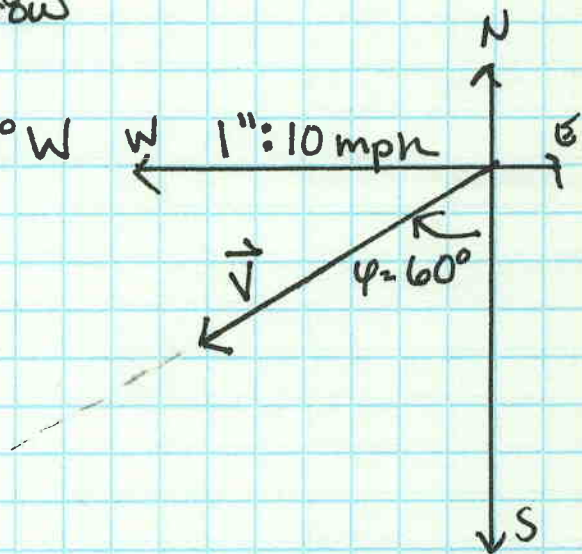 8W
N
° W W 1":10 mph E
V
φ=60°
S